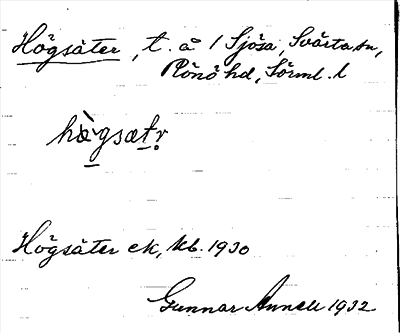 Högsäter, t. å / Sjösa, Svärta sn,
Rönö hd, Sörml. l
högsætr
Högsäter ek, kb. 1930
Gunnar Annell 1932